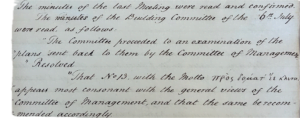 The minutes of the last Meeting were read and confirmed.
The minutes of the Building Committee of the 6th July
were read, as follows:
"The Committee proceeded to an examination of the
plans sent back to them by the Committee of Managemen
"Resolved
"That No 13. with the Motto
appears most consonant with the general views of the
Committee of Management, and that the same be recom
mended accordingly